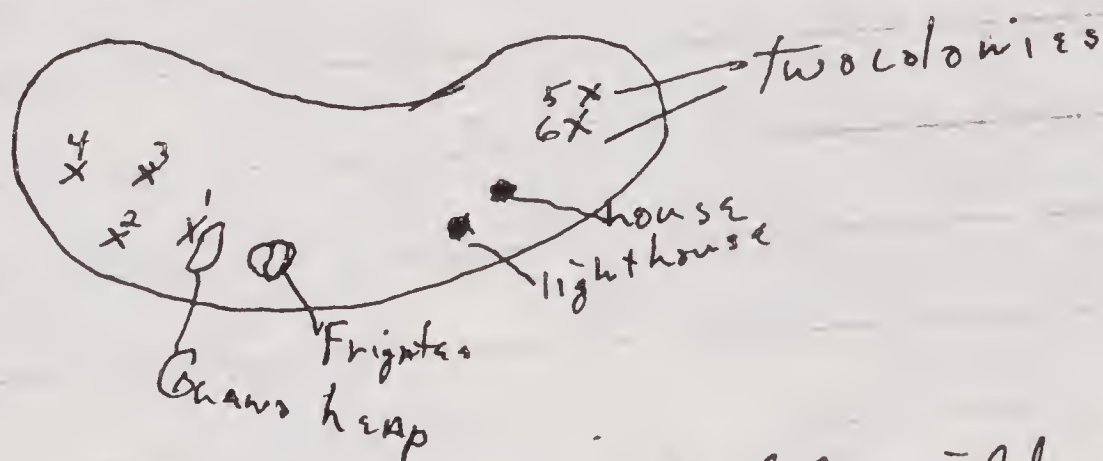 two colonies
5 X
6 X
4 X
X 3
X 2
X 1
house
lighthouse
Guano heap